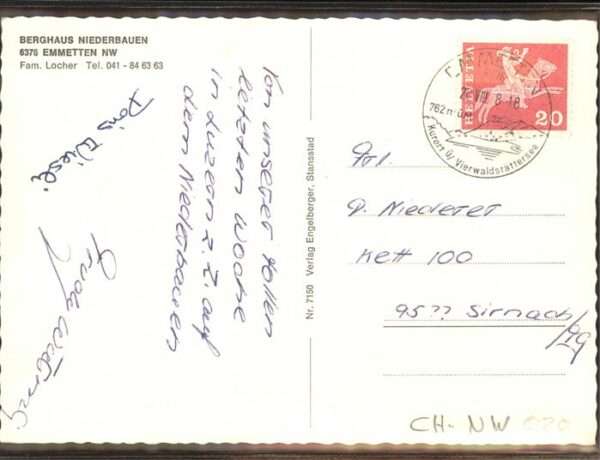 BERGHAUS NIEDERBAUEN
6376 EMMETTEN NW
Fam. Locher Tel. 041 - 84 63 63
Von unserer tollen
letzten Woche
in Luzern z. Z. auf
dem Niederbauen
Doris Wiesli
Nr. 7150 Verlag Engelberger, Stansstad
HELVETIA
20
762 m ü.
Kurort ü/ Vierwaldstättersee
Frl.
P. Niederer
Kett 100
95?? Sirnach/
CH-NW